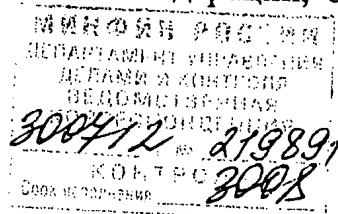 МИНФИН РОССИИ
ДЕПАРТАМЕНТ УПРАВЛЕНИЯ
ДЕЛАМИ И КОНТРОЛЯ
ВЕДОМСТВЕННАЯ
300712 № 219891
КОНТРО
3008
Срок исполнения